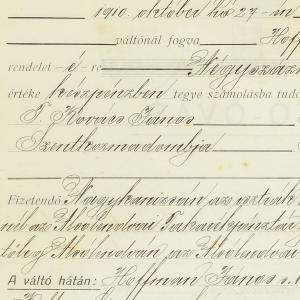 1910. október hó 27-én
váltónál fogva Hoff
rendelet - é - re Négyszáz
értéke készpénzben tegye számolásba tudo
T. Kovács János
Szentkozmadombja
Fizetendő Nagykanizsán az osztrák
nál az Alsólendvai Takarékpénztár
tőleg Alsólendván az Alsólendvai
A váltó hátán: Hoffman János s. k.